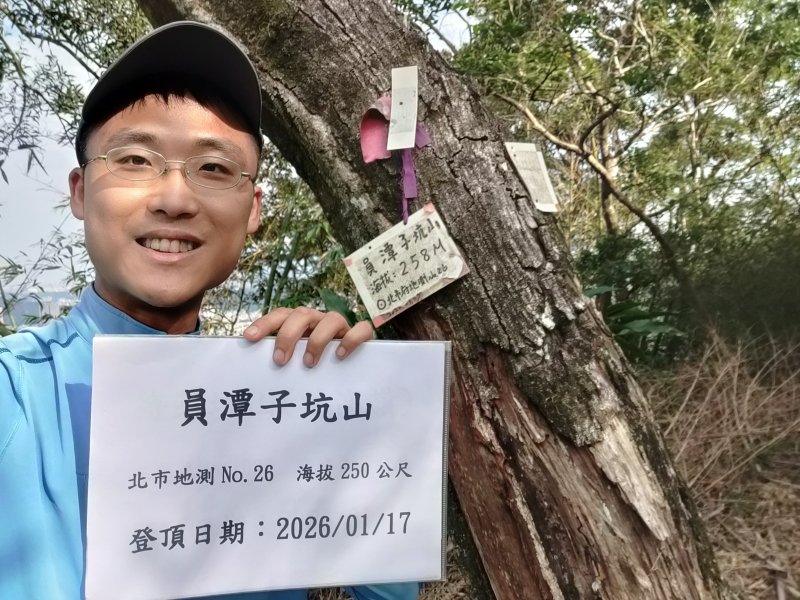 員潭子坑山
海拔：258M
北市府地測No.26
員潭子坑山
北市地測 No.26 海拔 250 公尺
登頂日期：2026/01/17